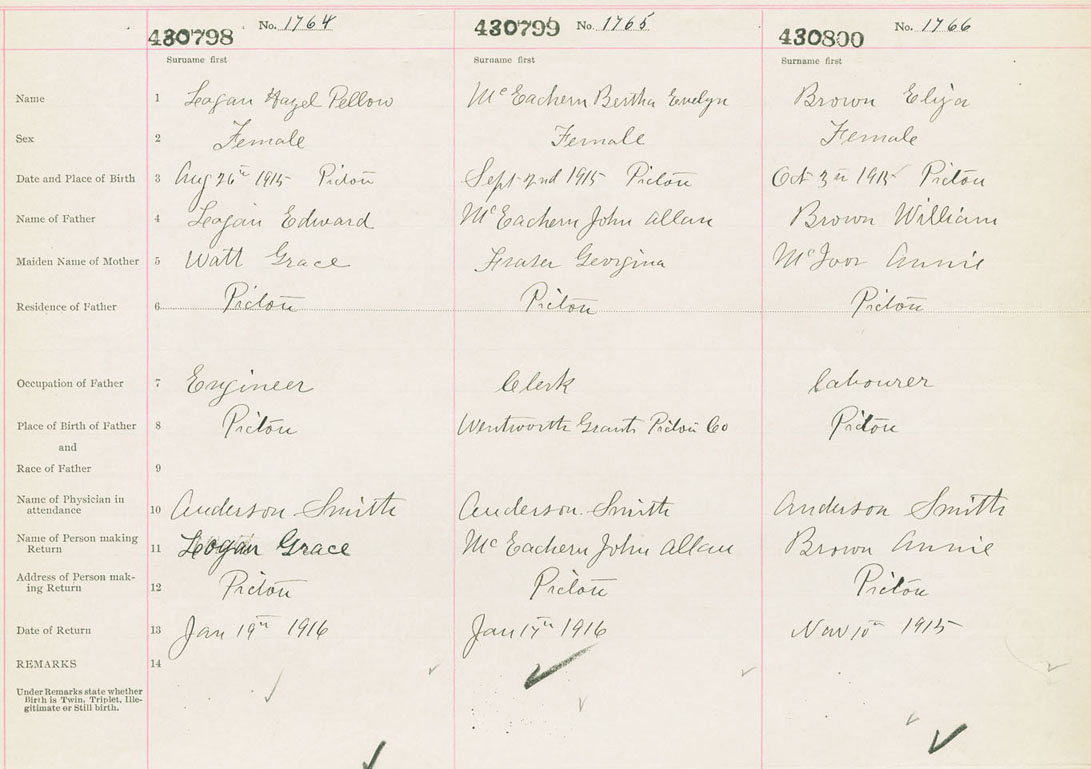 430798 No. 1764 430799 No. 1765 430800 No. 1766
Surname first Surname first Surname first
Name 1 Logan Hazel Pellow McEachern Bertha Evelyn Brown Eliza
Sex 2 Female Female Female
Date and Place of Birth 3 Aug 26th 1915 Pictou Sept 2nd 1915 Pictou Oct 3rd 1915 Pictou
Name of Father 4 Logan Edward McEachern John Allan Brown William
Maiden Name of Mother 5 Watt Grace Fraser Georgina McIvor Annie
Residence of Father 6 Pictou Pictou Pictou
Occupation of Father 7 Engineer Clerk Labourer
Place of Birth of Father 8 Pictou Wentworth Grant Pictou Co Pictou
and
Race of Father 9
Name of Physician in
attendance 10 Anderson Smith Anderson Smith Anderson Smith
Name of Person making
Return 11 Logan Grace McEachern John Allan Brown Annie
Address of Person mak-
ing Return 12 Pictou Pictou Pictou
Date of Return 13 Jan 19th 1916 Jan 17th 1916 Nov 10th 1915
REMARKS 14
Under Remarks state whether
Birth is Twin, Triplet, Ille-
gitimate or Still birth.